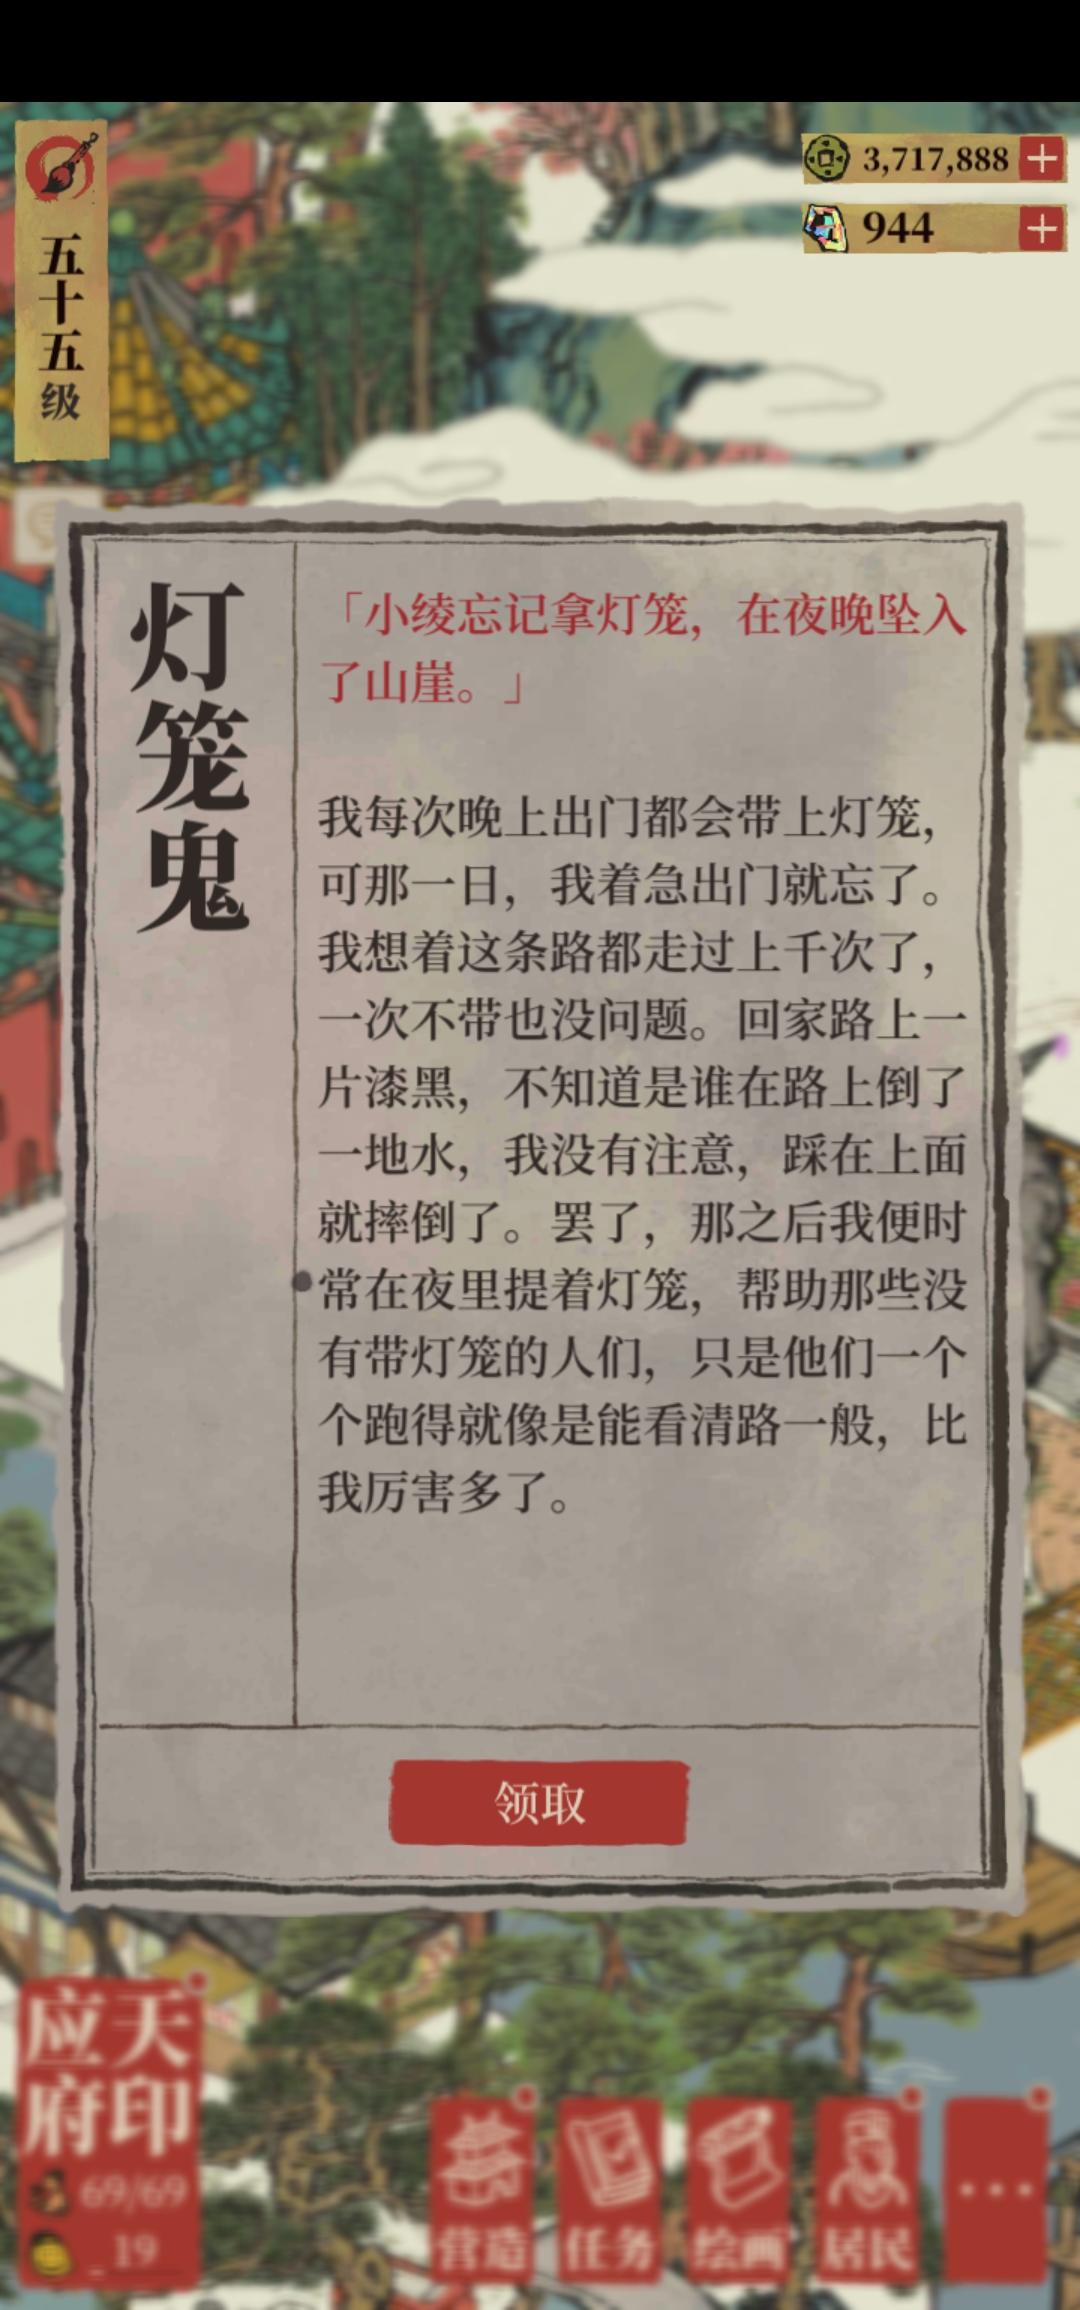 五十五级
3,717,888
944
灯笼鬼
「小绫忘记拿灯笼，在夜晚坠入
了山崖。」
我每次晚上出门都会带上灯笼，
可那一日，我着急出门就忘了。
我想着这条路都走过上千次了，
一次不带也没问题。回家路上一
片漆黑，不知道是谁在路上倒了
一地水，我没有注意，踩在上面
就摔倒了。罢了，那之后我便时
常在夜里提着灯笼，帮助那些没
有带灯笼的人们，只是他们一个
个跑得就像是能看清路一般，比
我厉害多了。
领取
应天
府印
69/69
19
营造
任务
绘画
居民